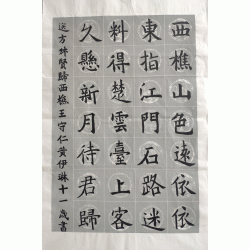 西樵山色遠依依
東指江門石路迷
料得楚雲臺上客
久懸新月待君歸
送方叔賢歸西樵王守仁黄伊琳十一歲書